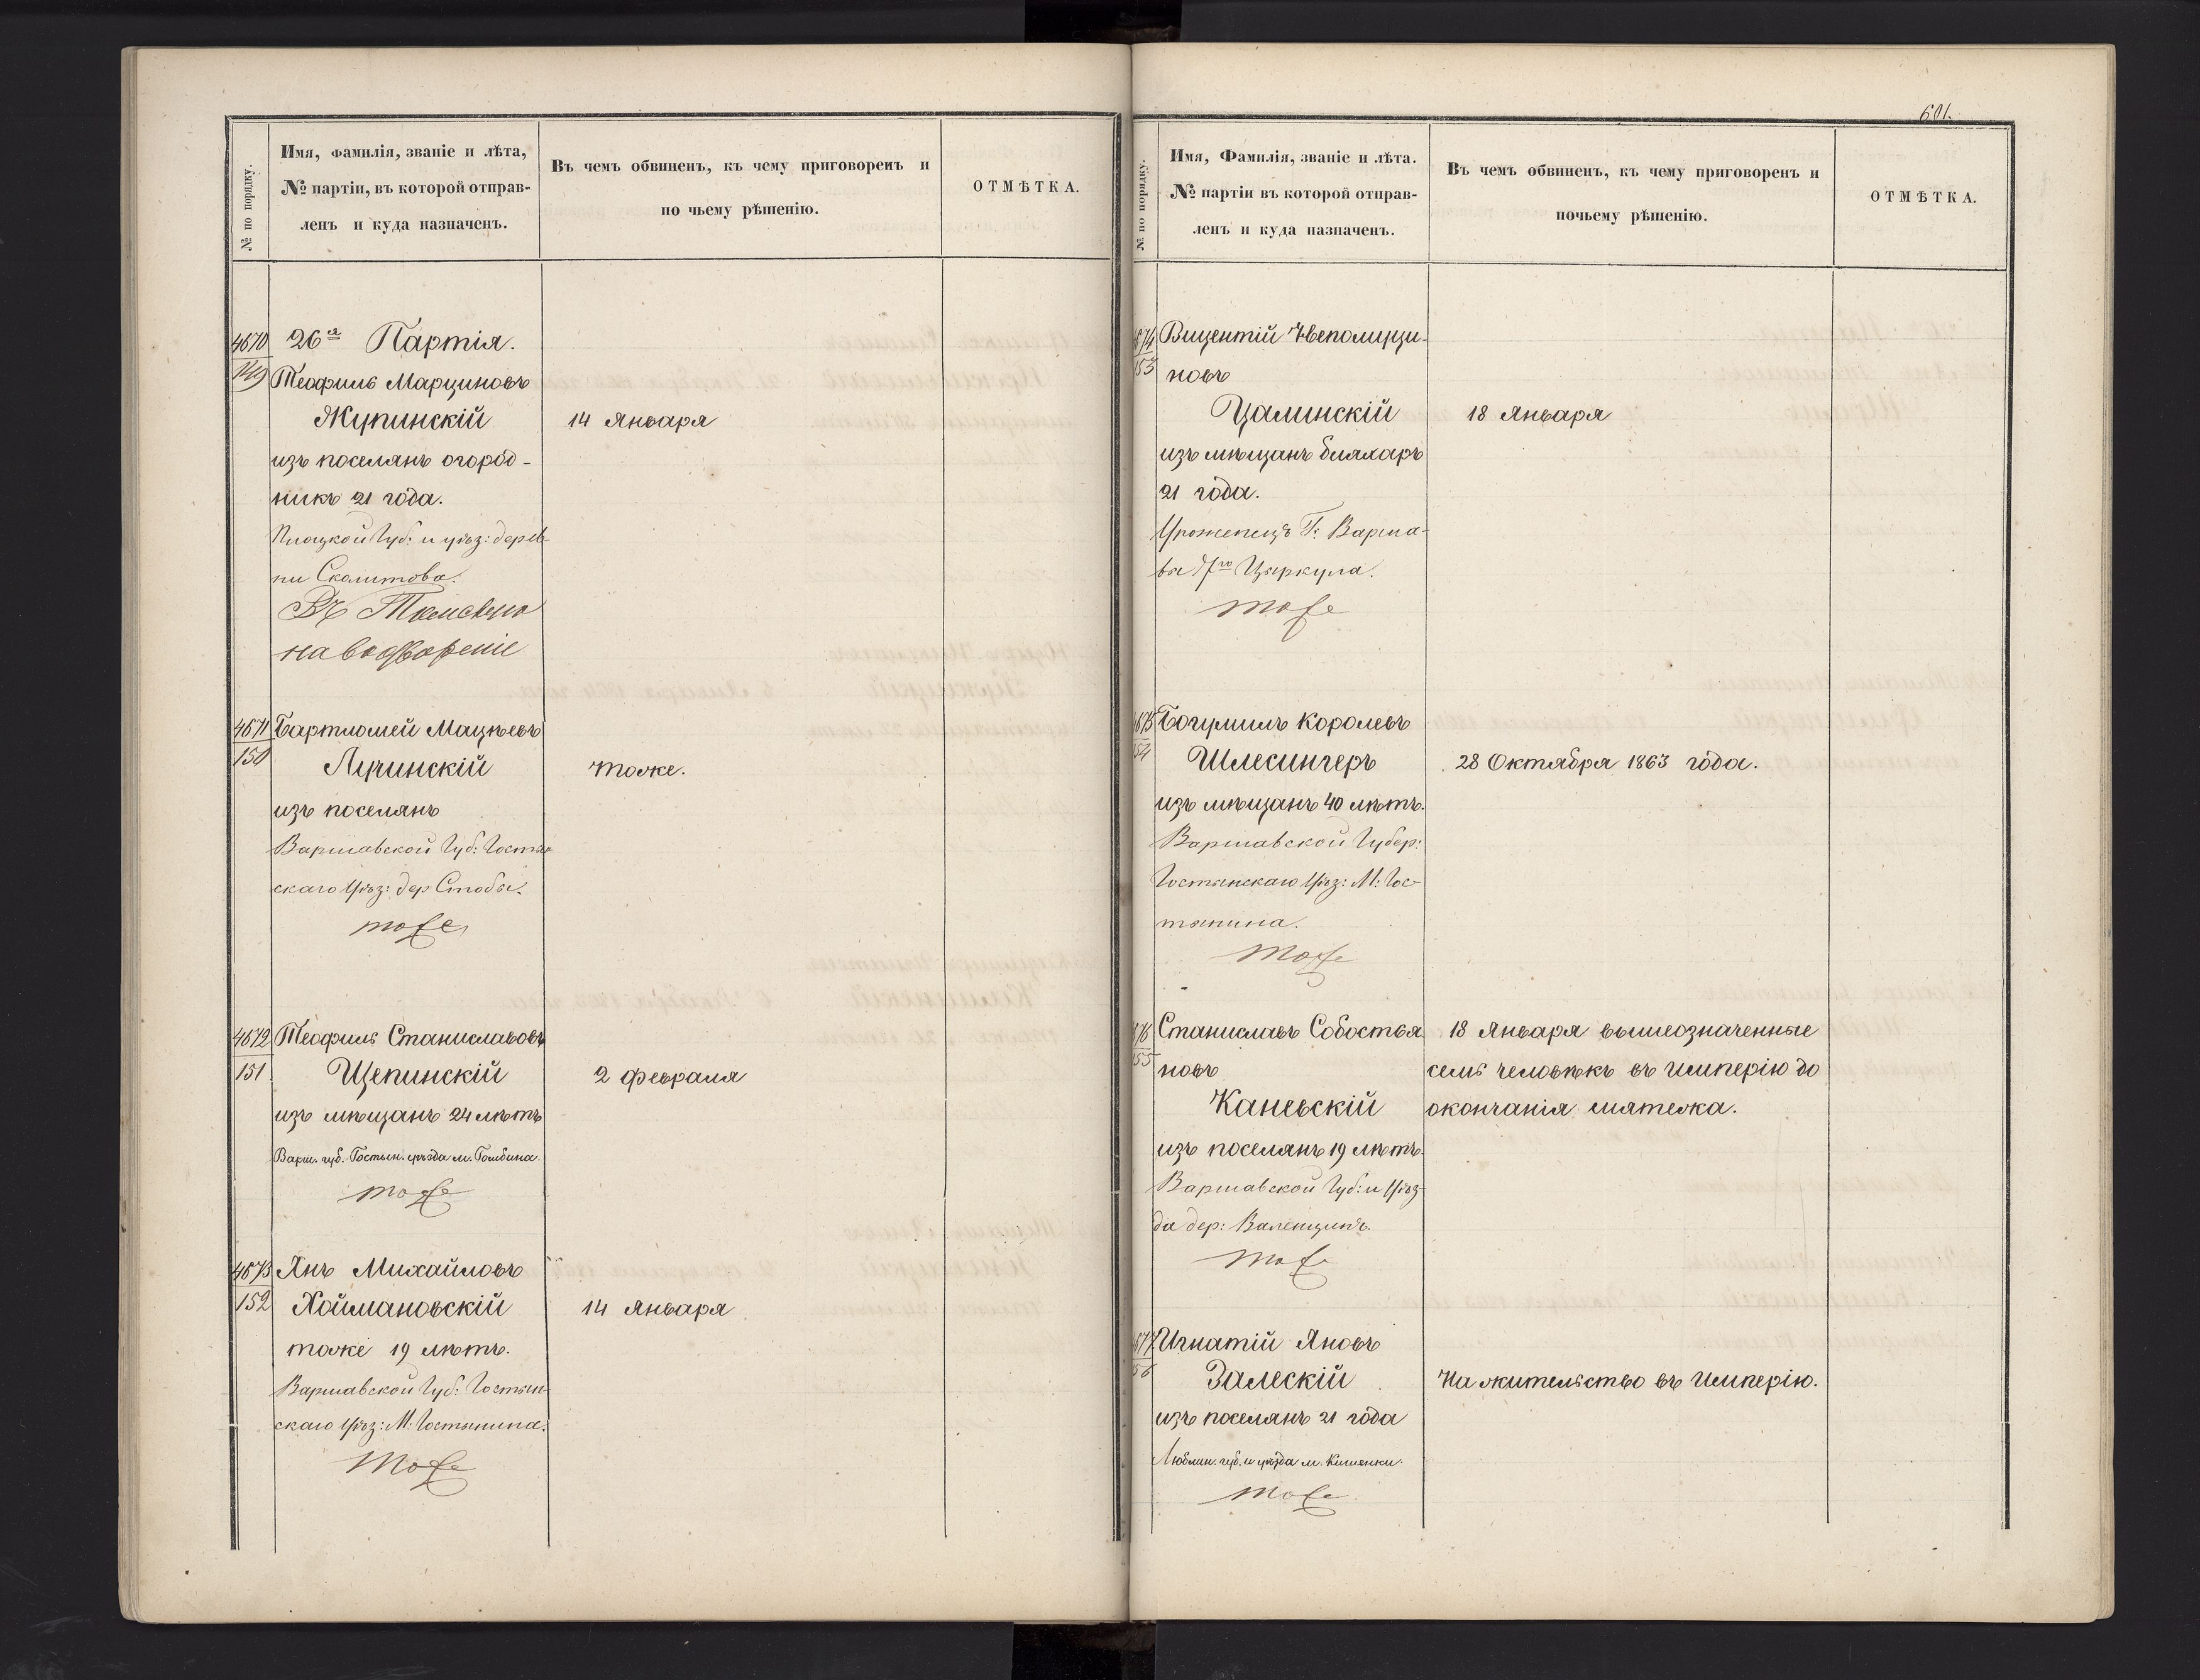 № по порядку.
Имя, фамилія, званіе и лѣта,
№ партіи, въ которой отправ-
ленъ и куда назначенъ.
Въ чемъ обвиненъ, къ чему приговоренъ и
по чьему рѣшенію.
ОТМѢТКА.
4670
149
26я Партія.
Теофиль Марциновъ
Жупинскій
14 Января
изъ поселянъ огород-
никъ 21 года.
Плоцкой Губ: и уѣз: дерев-
ни Сколитова.
Въ Томскую
на водвореніе
4671
150
Бартломей Мацѣевъ
Лучинскій
тоже.
изъ поселянъ
Варшавской Губ: Гостын-
скаго Уѣз: дер Стобы.
тоже
4672
151
Теофиль Станиславовъ
Щепинскій
2 Февраля
изъ мѣщанъ 24 лѣтъ
Варш. губ. Гостын. уѣзда м. Гомбина.
тоже
4673
152
Янъ Михайловъ
Хоймановскій
14 Января
тоже 19 лѣтъ.
Варшавской Губ: Гостын-
скаго Уѣз: М: Гостынина.
тоже
601.
№ по порядку.
Имя, Фамилія, званіе и лѣта.
№ партіи въ которой отправ-
ленъ и куда назначенъ.
Въ чемъ обвиненъ, къ чему приговоренъ и
почьему рѣшенію.
ОТМѢТКА.
674
153
Вицентій Непомуци-
новъ
Цалинскій
18 Января
изъ мѣщанъ бляхаръ
21 года.
Уроженецъ Г: Варша-
вы 7го Цыркула.
тоже
675
154
Богумилъ Королевъ
Шлесингеръ
28 Октября 1863 года.
изъ мѣщанъ 40 лѣтъ.
Варшавской Губер:
Гостынскаго Уѣз: М: Гос-
тынина.
тоже
676
155
Станиславъ Собостья
новъ
Каневскій
18 Января вышеозначенные
семь человѣкъ въ Имперію до
окончанія мятежа.
изъ поселянъ 19 лѣтъ.
Варшавской Губ: и Уѣз-
да дер: Валенцинъ.
тоже
677
156
Игнатій Яновъ
Залескій
На жительство въ Имперію.
изъ поселянъ 21 года
Люблин. губ. и уѣзда м.
тоже